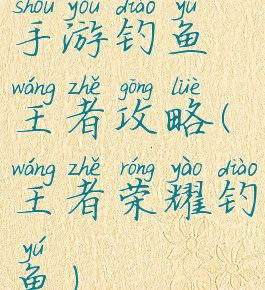 shǒu yóu diào yú
手游钓鱼
wáng zhě gōng lüè
王者攻略(
wáng zhě róng yào diào
王者荣耀钓
yú
鱼)